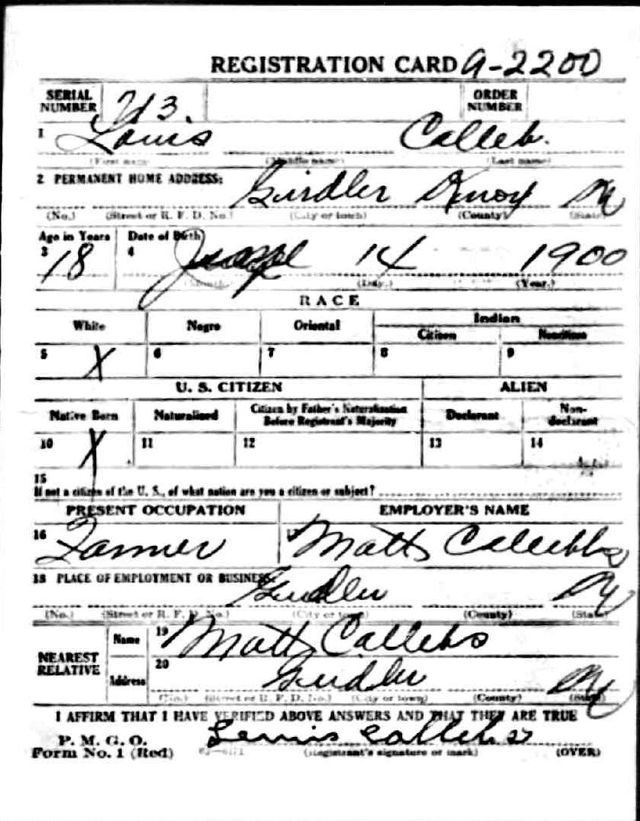 REGISTRATION CARD 9-2200
SERIAL NUMBER 423 ORDER NUMBER
1 Louis Calleb.
(First name) (Middle name) (Last name)
2 PERMANENT HOME ADDRESS: Girdler Knox Ky
(No.) (Street or R. F. D. No.) (City or town) (County) (State)
Age in Years Date of Birth
3 18 4 14 1900
(Month) (Day.) (Year.)
RACE
White Negro Oriental Indian
Citizen Noncitizen
5 X 6 7 8 9
U. S. CITIZEN ALIEN
Native Born Naturalized Citizen by Father's Naturalization Before Registrant's Majority Declarant Non-declarant
10 X 11 12 13 14
15
If not a citizen of the U. S., of what nation are you a citizen or subject?
PRESENT OCCUPATION EMPLOYER'S NAME
16 Farmer Matt Callebbs
18 PLACE OF EMPLOYMENT OR BUSINESS: Girdler Ky
(No.) (Street or R. F. D. No.) (City or town) (County) (State)
NEAREST RELATIVE
Name 19 Matt Callebs
Address 20 Girdler Ky
(No.) (Street or R. F. D. No.) (City or town) (County) (State)
I AFFIRM THAT I HAVE VERIFIED ABOVE ANSWERS AND THAT THEY ARE TRUE
P. M. G. O.
Form No. 1 (Red) Lewis Callebs
(Registrant's signature or mark) (OVER)